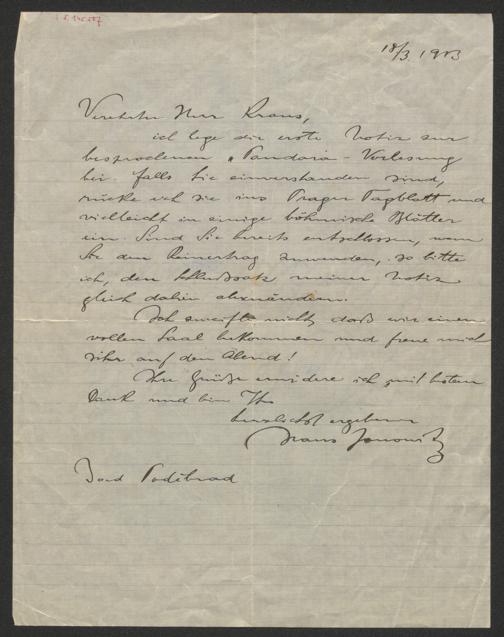 18/3. 1913
Verehrter Herr Kraus,
ich lege die erste Notiz zur
besprochenen „Pandora-Vorlesung
bei. Falls Sie einverstanden sind,
rücke ich sie ins Prager Tagblatt und
vielleicht in einige böhmische Blätter
ein. Sind Sie bereits entschlossen, wem
Sie den Reinertrag zuwenden, so bitte
ich, den Schlußsatz meiner Notiz
gleich dahin abzuändern.
Ich zweifle nicht, daß wir einen
vollen Saal bekommen und freue mich
sehr auf den Abend!
Ihre Grüße erwidere ich mit bestem
Dank und bin Ihr
herzlichst ergebener
Franz Janowitz
Bad Podĕbrad